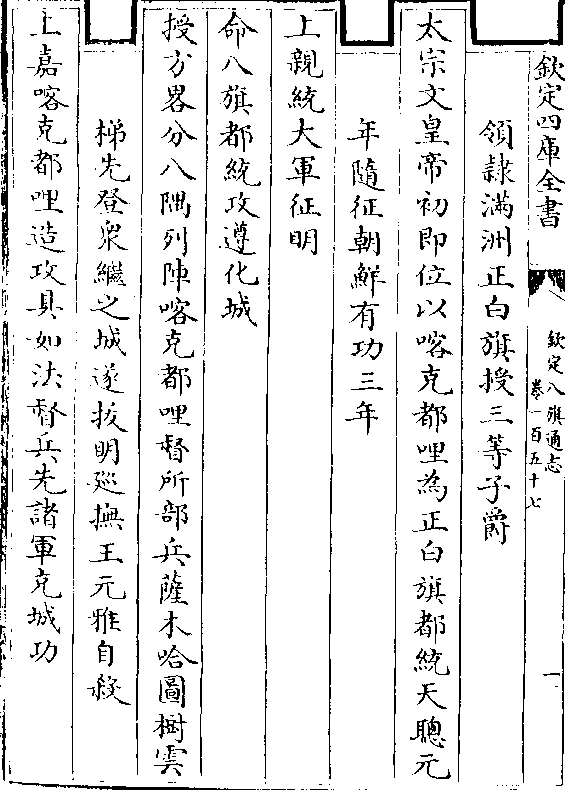 欽定四庫全書
欽定八旗通志
卷一百五十七
一
領隷滿洲正白旗授三等子爵
太宗文皇帝初即位以喀克都哩為正白旗都統天聰元
年隨征朝鮮有功三年
上親統大軍征明
命八旗都統攻遵化城
授方畧分八隅列陣喀克都哩督所部兵薩木哈圖樹雲
梯先登衆繼之城遂拔明廵撫王元雅自殺
上嘉喀克都哩造攻具如法督兵先諸軍克城功